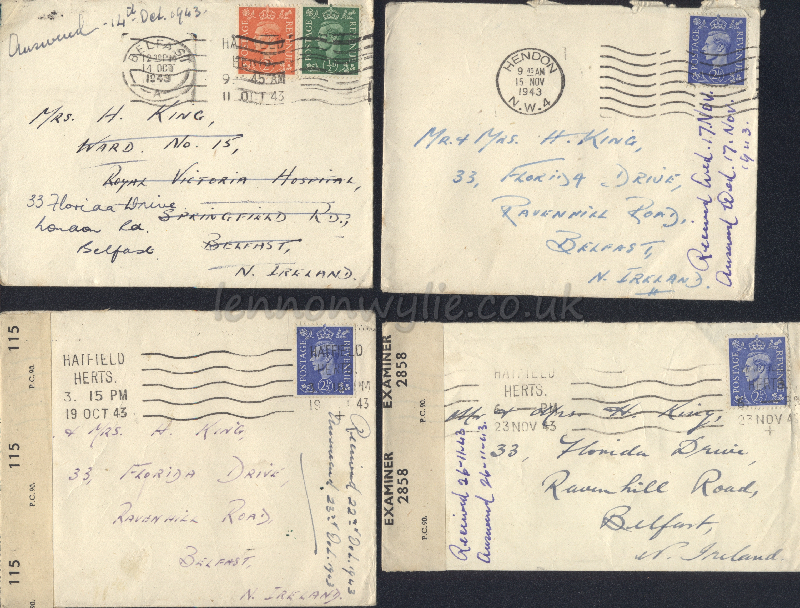 Answered - 14th Oct. 1943.
BELFAST
12 PM
14 OCT
1943
A
9 45 AM
11 OCT 43
MRS. H. KING,
WARD. NO. 15,
ROYAL VICTORIA HOSPITAL,
33 Florida Drive
SPRINGFIELD RD.,
London Rd.
Belfast
BELFAST,
N. IRELAND.
HENDON
9 AM
15 NOV
1943
N.W.4
POSTAGE REVENUE
2½
MR. & MRS. H. KING,
33, FLORIDA DRIVE,
RAVENHILL ROAD,
BELFAST,
N. IRELAND.
Received Wed. 17. Nov.
Answered Wed. 17. Nov.
1943.
lennonwylie.co.uk
115
P.C. 90.
115
P.C. 90.
115
HATFIELD
HERTS.
3. 15 PM
19 OCT 43
POSTAGE REVENUE
2½
& MRS. H. KING,
33, FLORIDA DRIVE,
RAVENHILL ROAD,
BELFAST,
N. IRELAND.
Received 22nd Oct. 1943
Answered 23rd Oct. 1943
EXAMINER
2858
P.C. 90.
EXAMINER
2858
P.C. 90.
HATFIELD
HERTS.
PM
23 NOV 43
POSTAGE REVENUE
2½
23 NOV 43
Mr & Mrs H. King,
33, Florida Drive,
Ravenhill Road,
Belfast,
N. Ireland.
Received 26-11-43
Answered 26-11-43.